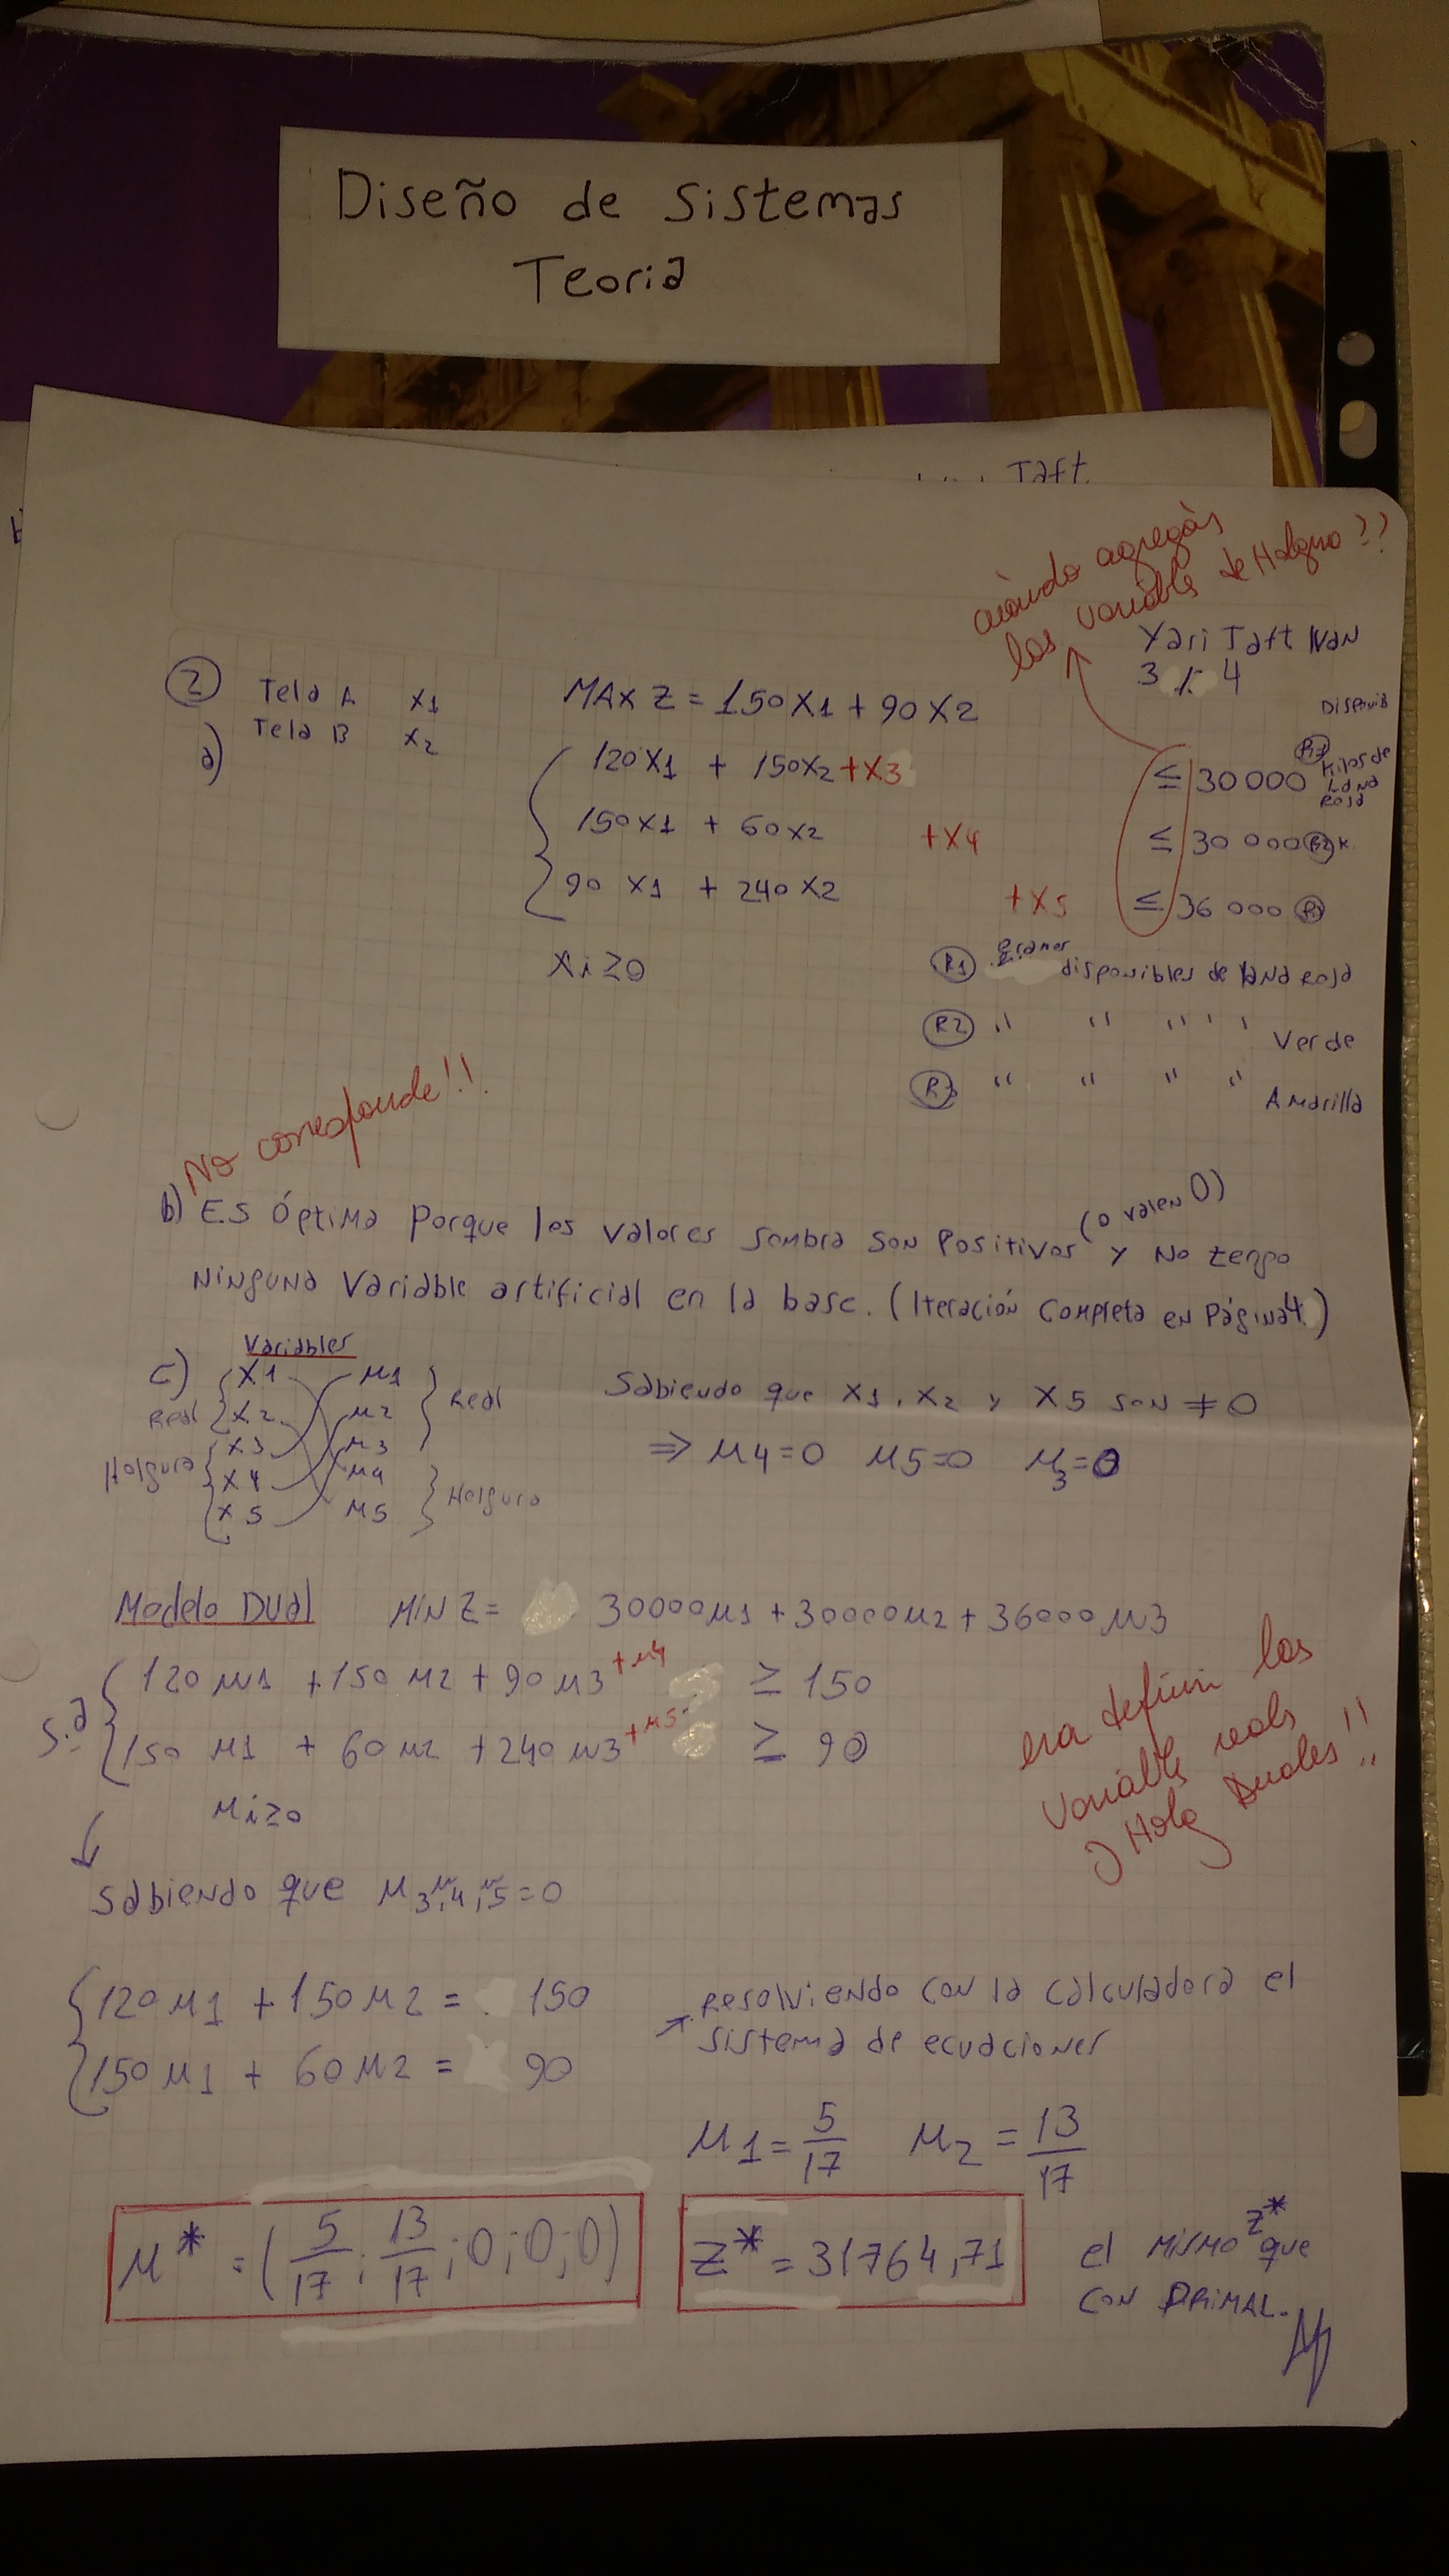 Diseño de Sistemas
Teoria
Taft
cuándo agregás
las variables de Holgura??
Yari Taft IVAN
3 / 4
② Tela A X1 MAX Z = 150X1 + 90X2
Tela B X2
a)
Disponib
120X1 + 150X2 +X3 ≤ 30000 R1 Kilos de Lana Roja
150X1 + 60X2 +X4 ≤ 30 000 R2 K
90 X1 + 240X2 +X5 ≤ 36 000
Xi≥0
R1 gramos disponibles de lana roja
R2 " " " " Verde
R3 " " " " Amarilla
No corresponde!!
b) ES óptima Porque los valores sombra son Positivos (o valen 0) y No tengo
NiNguna Variable artificial en la base. (Iteración Completa en Página 4)
Variables
c) X1 μ1
Real X2 μ2 Real
X3 μ3
Holgura X4 μ4
X5 μ5 Holgura
Sabiendo que X1, X2 y X5 son ≠ 0
⇒ μ4=0 μ5=0 μ3=0
Modelo Dual MIN Z = 30000μ1 + 30000μ2 + 36000μ3
S.a 120μ1 + 150μ2 + 90μ3 +μ4 ≥ 150
150 μ1 + 60μ2 + 240μ3 +μ5 ≥ 90
μi≥0
era definir las
variables reales
y Holg Duales!!
Sabiendo que μ3,μ4,μ5=0
120μ1 + 150μ2 = 150
150μ1 + 60μ2 = 90
Resolviendo con la calculadora el
sistema de ecuaciones
μ1 = 5/17 μ2 = 13/17
μ* = (5/17; 13/17; 0; 0; 0)
Z* = 31764,71
el mismo Z* que
con PRIMAL.